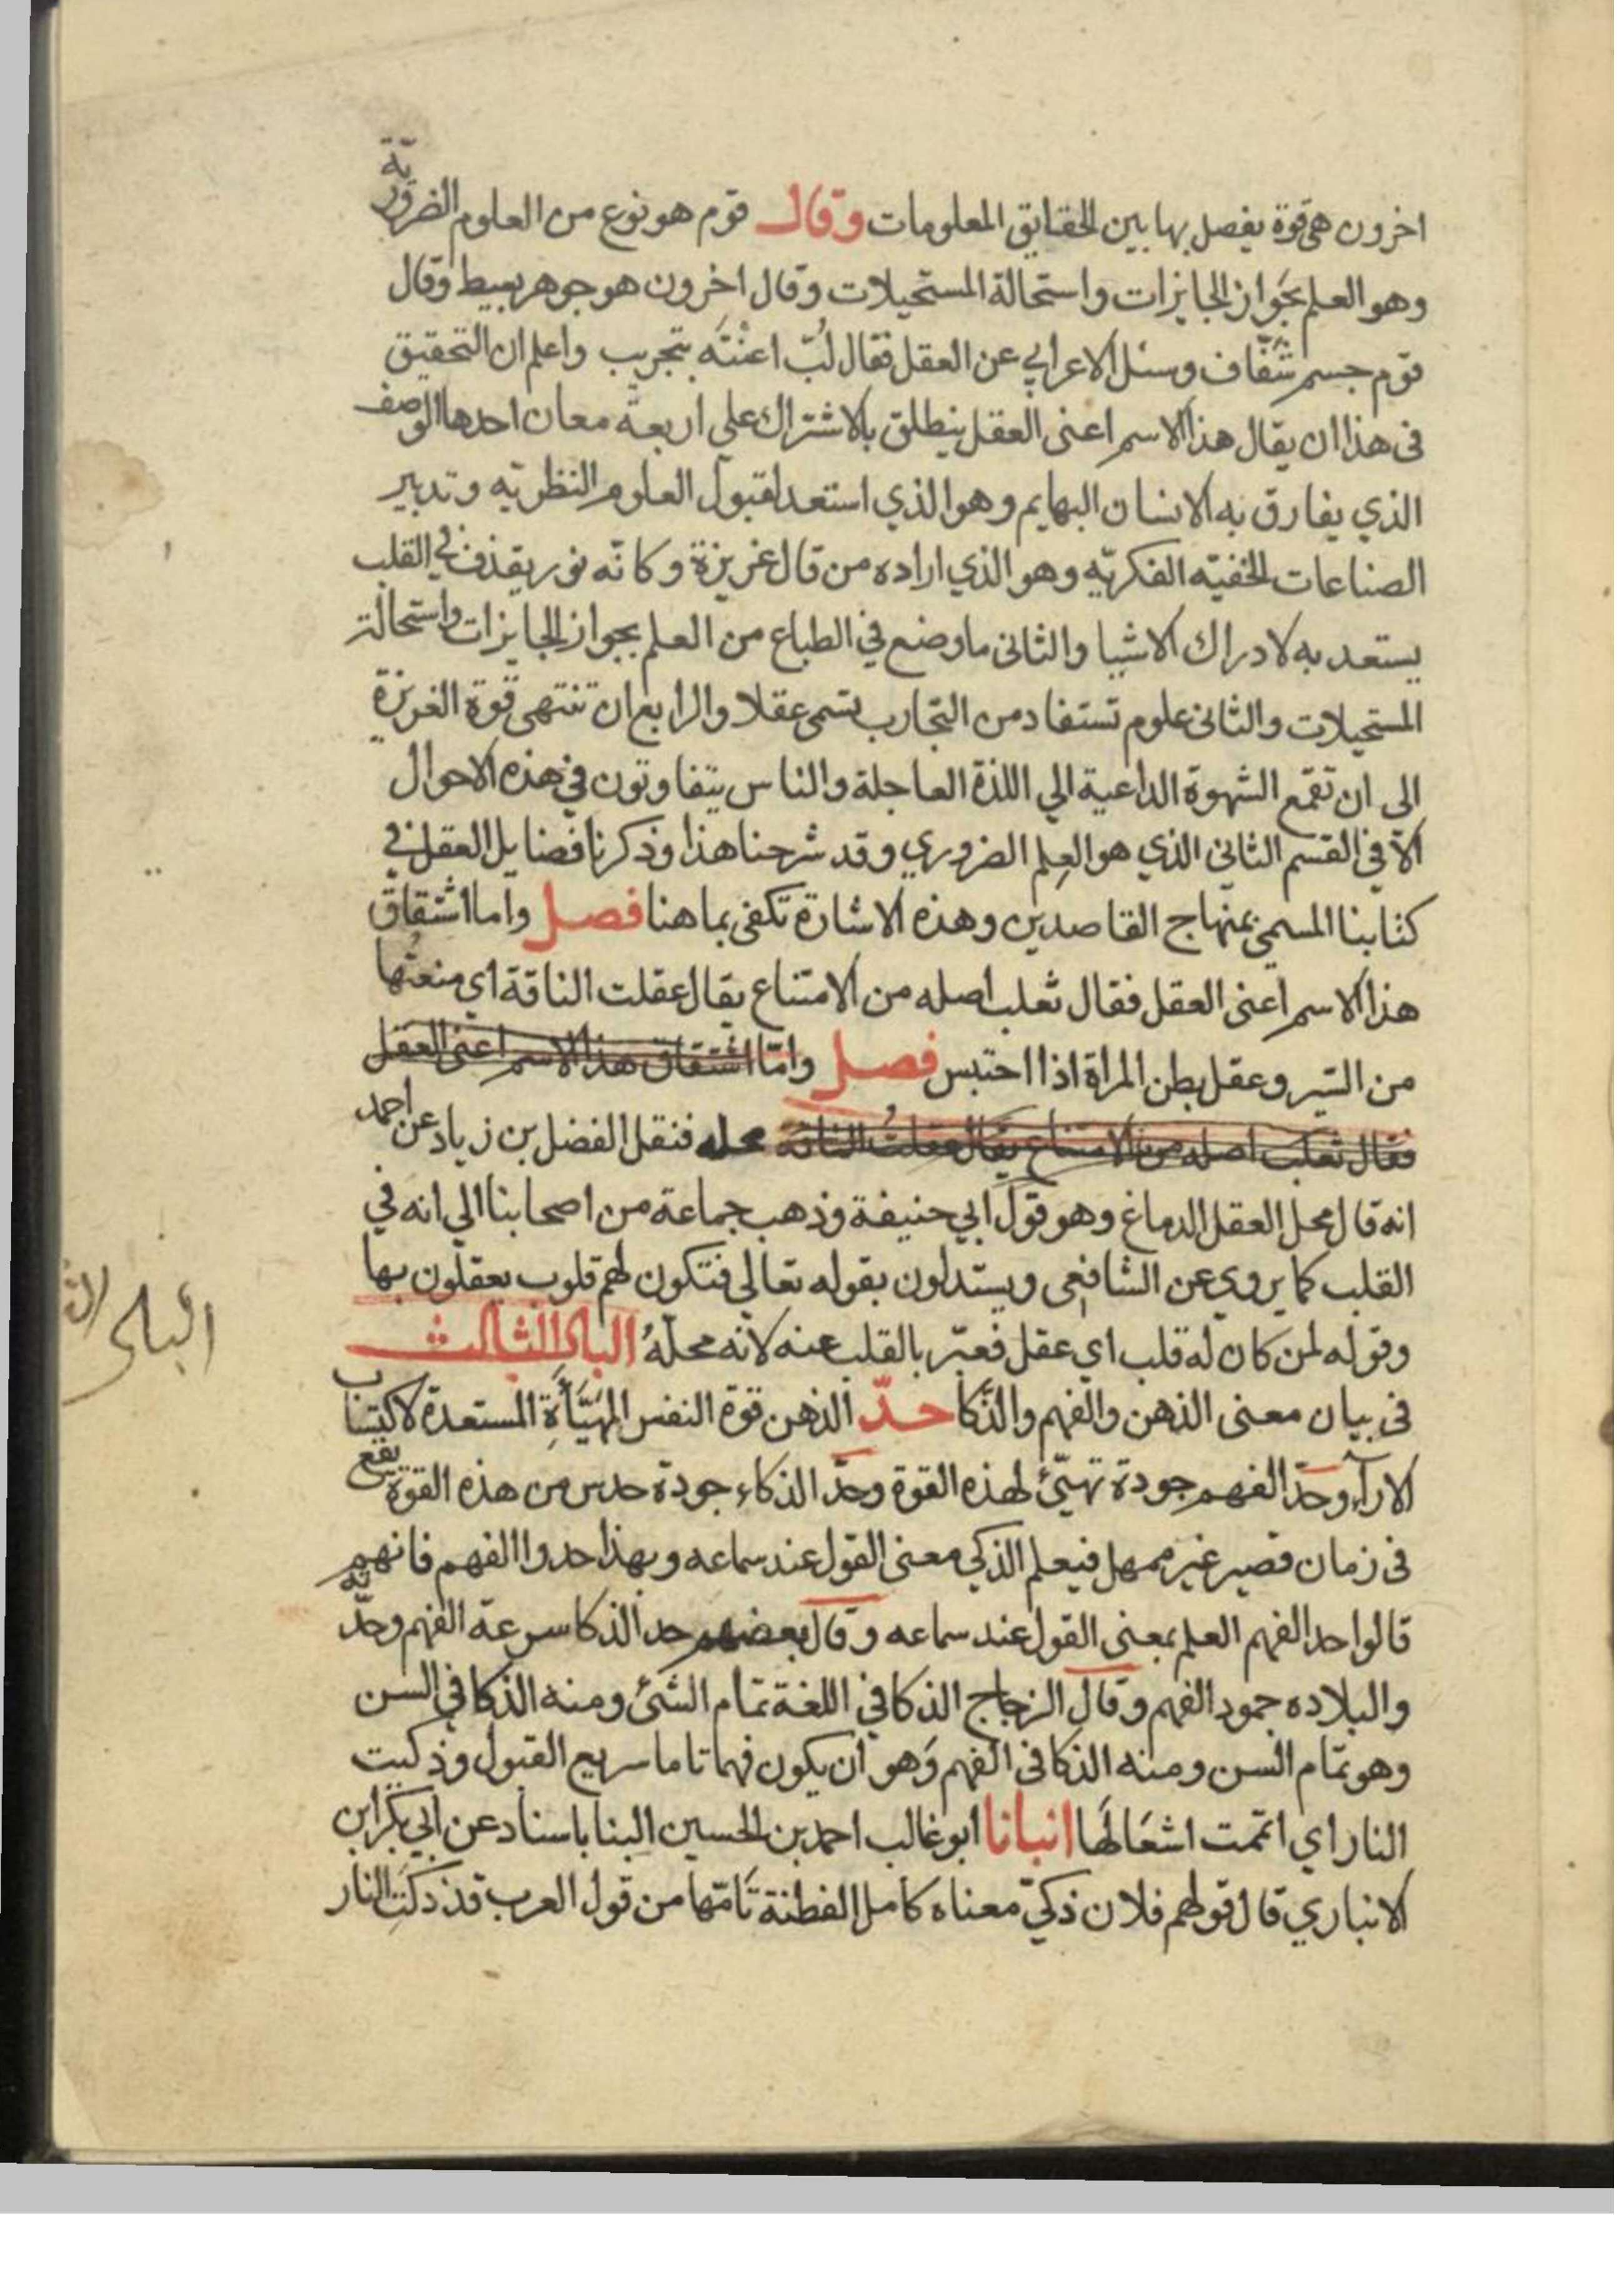 اخرون هي قوة يفصل بها بين الحقايق المعلومات وقال قوم هو نوع من العلوم الضرورية
وهو العلم بجواز الجايزات واستحالة المستحيلات وقال اخرون هو جوهر بسيط وقال
قوم جسم شفاف وسئل الاعرابي عن العقل فقال لبّ اعنته بتجريب واعلم ان التحقيق
فى هذا ان يقال هذا الاسم اعنى العقل ينطلق بالاشتراك علي اربعة معان احدها الوصف
الذي يفارق به الانسان البهايم وهو الذي استعد لقبول العلوم النظريّه وتدبير
الصناعات الخفيّه الفكريّه وهو الذي اراده من قال غريزة وكانّه نور يقذف في القلب
يستعد به لادراك الاشيا والثانى ما وضع في الطباع من العلم بجواز الجايزات واستحالة
المستحيلات والثانى علوم تستفاد من التجارب تسمى عقلا والرابع ان تنتهى قوة الغريزة
الى ان تقمع الشهوة الداعية الي اللذة العاجلة والناس يتفاوتون في هذه الاحوال
الاّ في القسم الثاني الذي هو العلم الضروري وقد شرحنا هذا وذكرنا فضايل العقل في
كتابنا المسمى بمنهاج القاصدين وهذه الاشارة تكفى بما هنا فصل واما اشتقاق
هذا الاسم اعنى العقل فقال ثعلب اصله من الامتناع يقال عقلت الناقة اي منعتها
من السّير وعقل بطن المراة اذا احتبس فصل وامّا اشتقاق هذا الاسم اعنى العقل
فقال ثعلب اصله من الامتناع يقال عقلت الناقة محله فنقل الفضل بن زياد عن احمد
انه قال محل العقل الدماغ وهو قول ابي حنيفة وذهب جماعة من اصحابنا الي انه في
القلب كما يروي عن الشافعى ويستدلون بقوله تعالي فتكون لهم قلوب يعقلون بها
وقوله لمن كان له قلب اي عقل فعبّر بالقلب عنه لانه محلّهُ الباب الثالث
فى بيان معنى الذهن والفهم والذّكا حدّ الذهن قوة النفس المهيّأة المستعدة لاكتساب
الارآء وحدّ الفهم جودة تهيّئ لهذه القوة وحدّ الذكاء جودة حدس من هذه القوة يقع
فى زمان قصير غير ممهل فيعلم الذكي معنى القول عند سماعه وبهذا حدوا الفهم فانهم
قالوا حد الفهم العلم بمعنى القول عند سماعه وقال بعضهم حد الذكا سرعة الفهم وحدّته
والبلاده جمود الفهم وقال الزجاج الذكا في اللغة تمام الشئ ومنه الذكا في السن
وهو تمام السن ومنه الذكا فى الفهم وهو ان يكون فهما تاما سريع القبول وذكيت
النار اي اتممت اشعالها انبانا ابو غالب احمد بن الحسين البنا باسناد عن ابي بكر ابن
الانباري قال قولهم فلان ذكيّ معناه كامل الفطنة تامّها من قول العرب قد ذكت النار